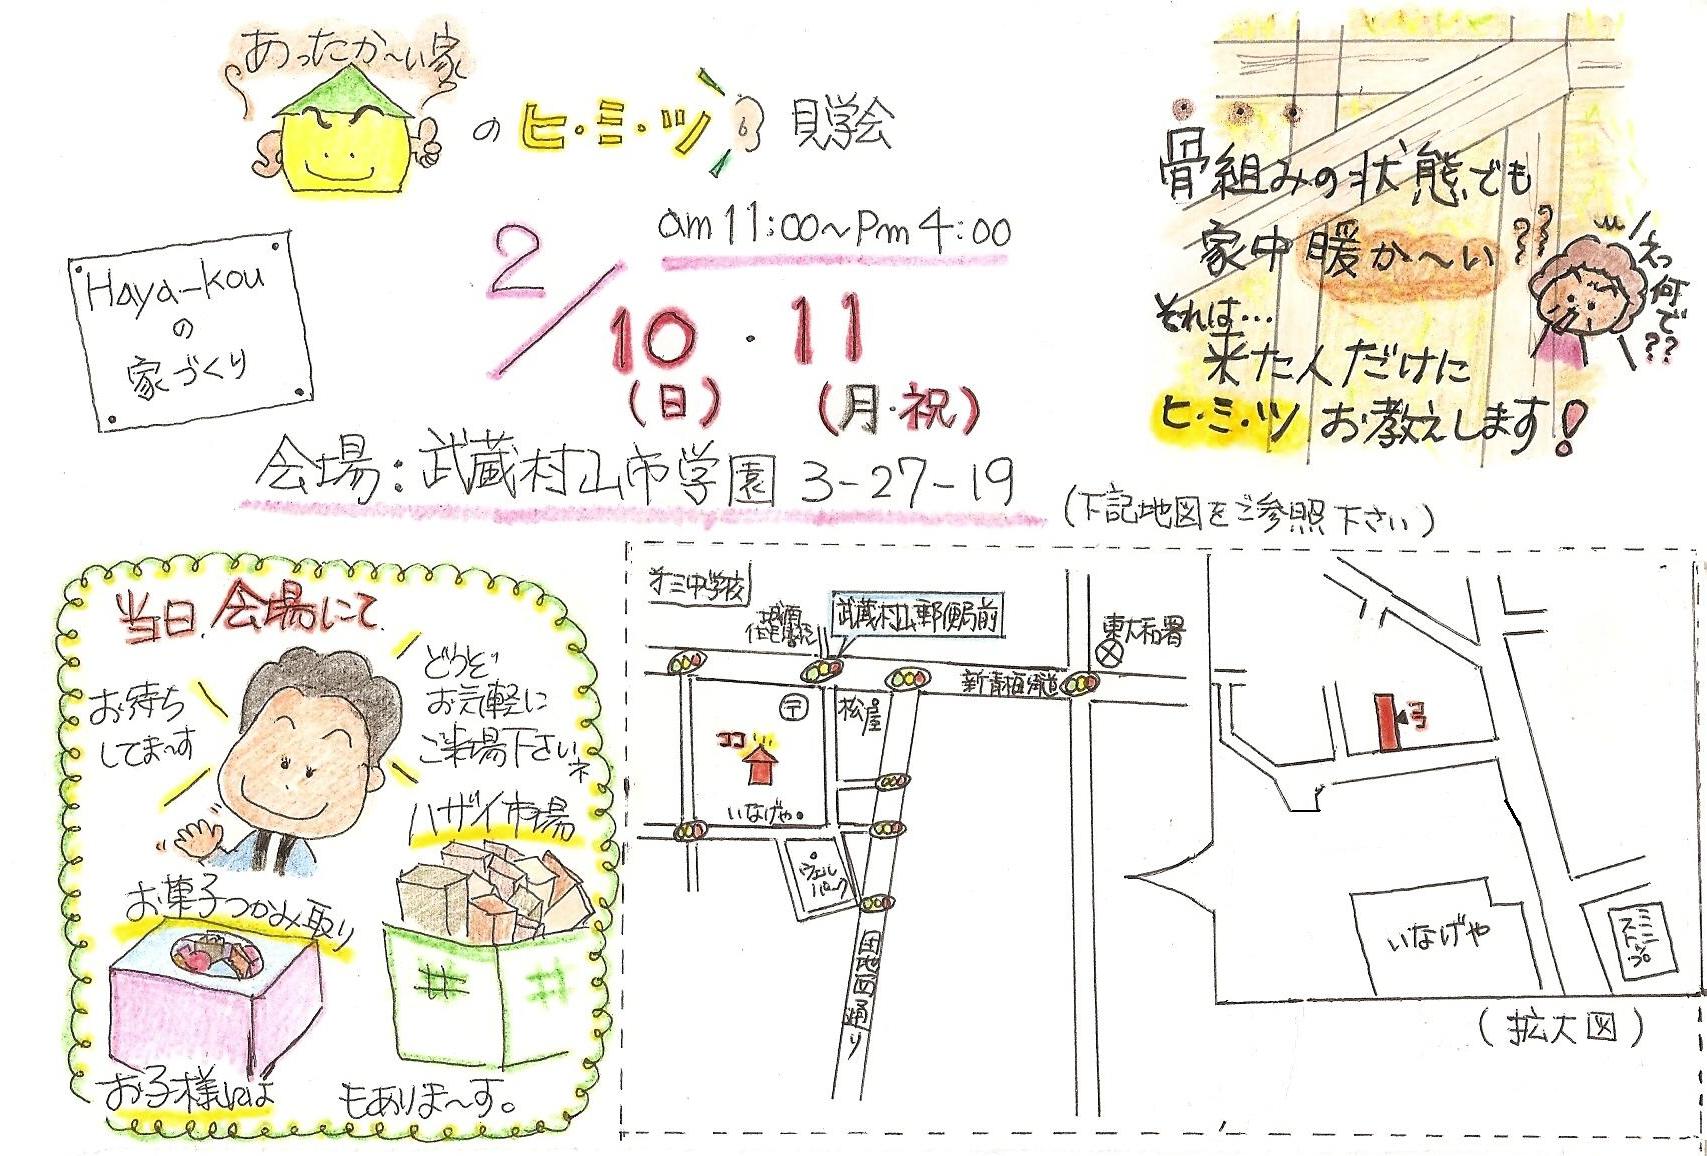 あったか～い家
の ヒ・ミ・ツ 見学会
am 11:00～Pm 4:00
2/10・11
(日) (月・祝)
Haya-kou
の
家づくり
会場：武蔵村山市学園 3-27-19
(下記地図をご参照下さい)
骨組みの状態でも
家中暖か～い??
それは…
来た人だけに
ヒ・ミ・ツお教えします!
えっ何で??
当日、会場にて
お待ち
してま～す
どうぞ
お気軽に
ご来場下さいネ
ハザイ市場
お菓子つかみ取り
お子様には
もありま～す。
第三中学校
武蔵村山郵便局前
東大和署
新青梅街道
〒
松屋
ココ
いなげや。
ウェルパーク
団地西通り
いなげや
ミニストップ
(拡大図)